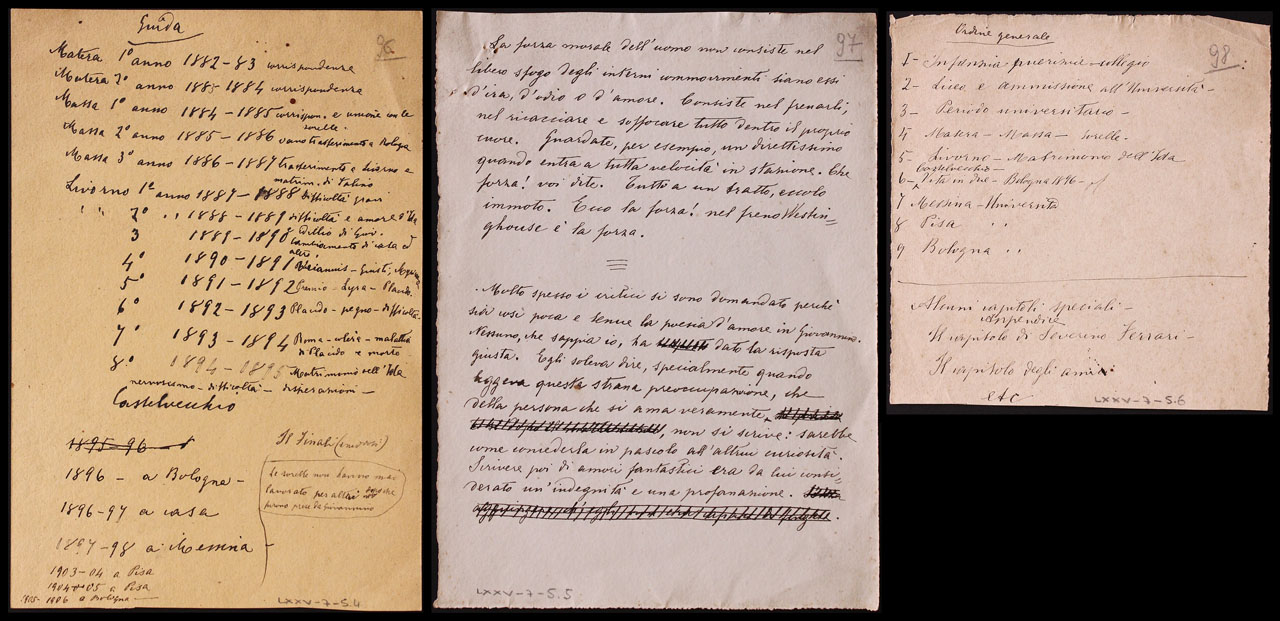 Guida
96
Matera 1º anno 1882-83 corrispondenza
Matera 2º anno 1883-1884 corrispondenza
Massa 1º anno 1884-1885 corrispon. e unione con le
sorelle.
Massa 2º anno 1885-1886 vano trasferimento a Bologna
Massa 3º anno 1886-1887 trasferimento a Livorno e
matrim. di
Livorno 1º anno 1887-1888 difficoltà gravi
" " 2º " 1888-1889 difficoltà e amore d'Ida
3 1889-1890 Idillio di
Cambiamento di casa ed
altri
4º 1890-1891 - Giusti,
5º 1891-1892 - Lyra - Placido
6º 1892-1893 Placido - pegno - difficoltà
7º 1893-1894 Roma - colèra - malattia
di Placido e morte
8º 1894-1895 Matrimonio dell'Ida
nervosismo - difficoltà - disperazioni -
Castelvecchio
1895-96
Il Finali
1896 - a Bologna -
Le sorelle non hanno mai
lavorato per altri dopo che
furono presso Giovannino
1896-97 a casa
1897-98 a Messina -
1903-04 a Pisa
1904-05 a Pisa
1905-1906 a Bologna
LXXV-7-5.4
97
La forza morale dell'uomo non consiste nel
libero sfogo degli interni commovimenti siano essi
d'ira, d'odio o d'amore. Consiste nel frenarli,
nel ricacciare e soffocare tutto dentro il proprio
cuore. Guardate, per esempio, un direttissimo
quando entra a tutta velocità in stazione. Che
forza! voi dite. Tutto a un tratto, eccolo
immoto. Ecco la forza! nel freno Westin-
ghouse è la forza.
Molto spesso i critici si sono domandato perchè
sia così poca e tenue la poesia d'amore in Giovannino.
Nessuno, che sappia io, ha dato la risposta
giusta. Egli soleva dire, specialmente quando
leggeva questa strana preoccupazione, che
della persona che si ama veramente,
non si scrive: sarebbe
come concederla in pascolo all'altrui curiosità.
Scrivere poi di amori fantastici era da lui consi-
derato un'indegnità e una profanazione.
LXXV-7-5.5
Ordine generale
98
1 - Infanzia puerizia - collegio
2 - Liceo e ammissione all'Università -
3 - Periodo universitario -
4 Matera - Massa - sorelle.
5 Livorno - Matrimonio dell'Ida
Castelvecchio -
6 - Vita in due - Bologna 1896 -
7 Messina - Università
8 Pisa " "
9 Bologna " "
Alcuni capitoli speciali -
Appendice
Il capitolo di Severino Ferrari -
Il capitolo degli amici
etc
LXXV-7-5.6